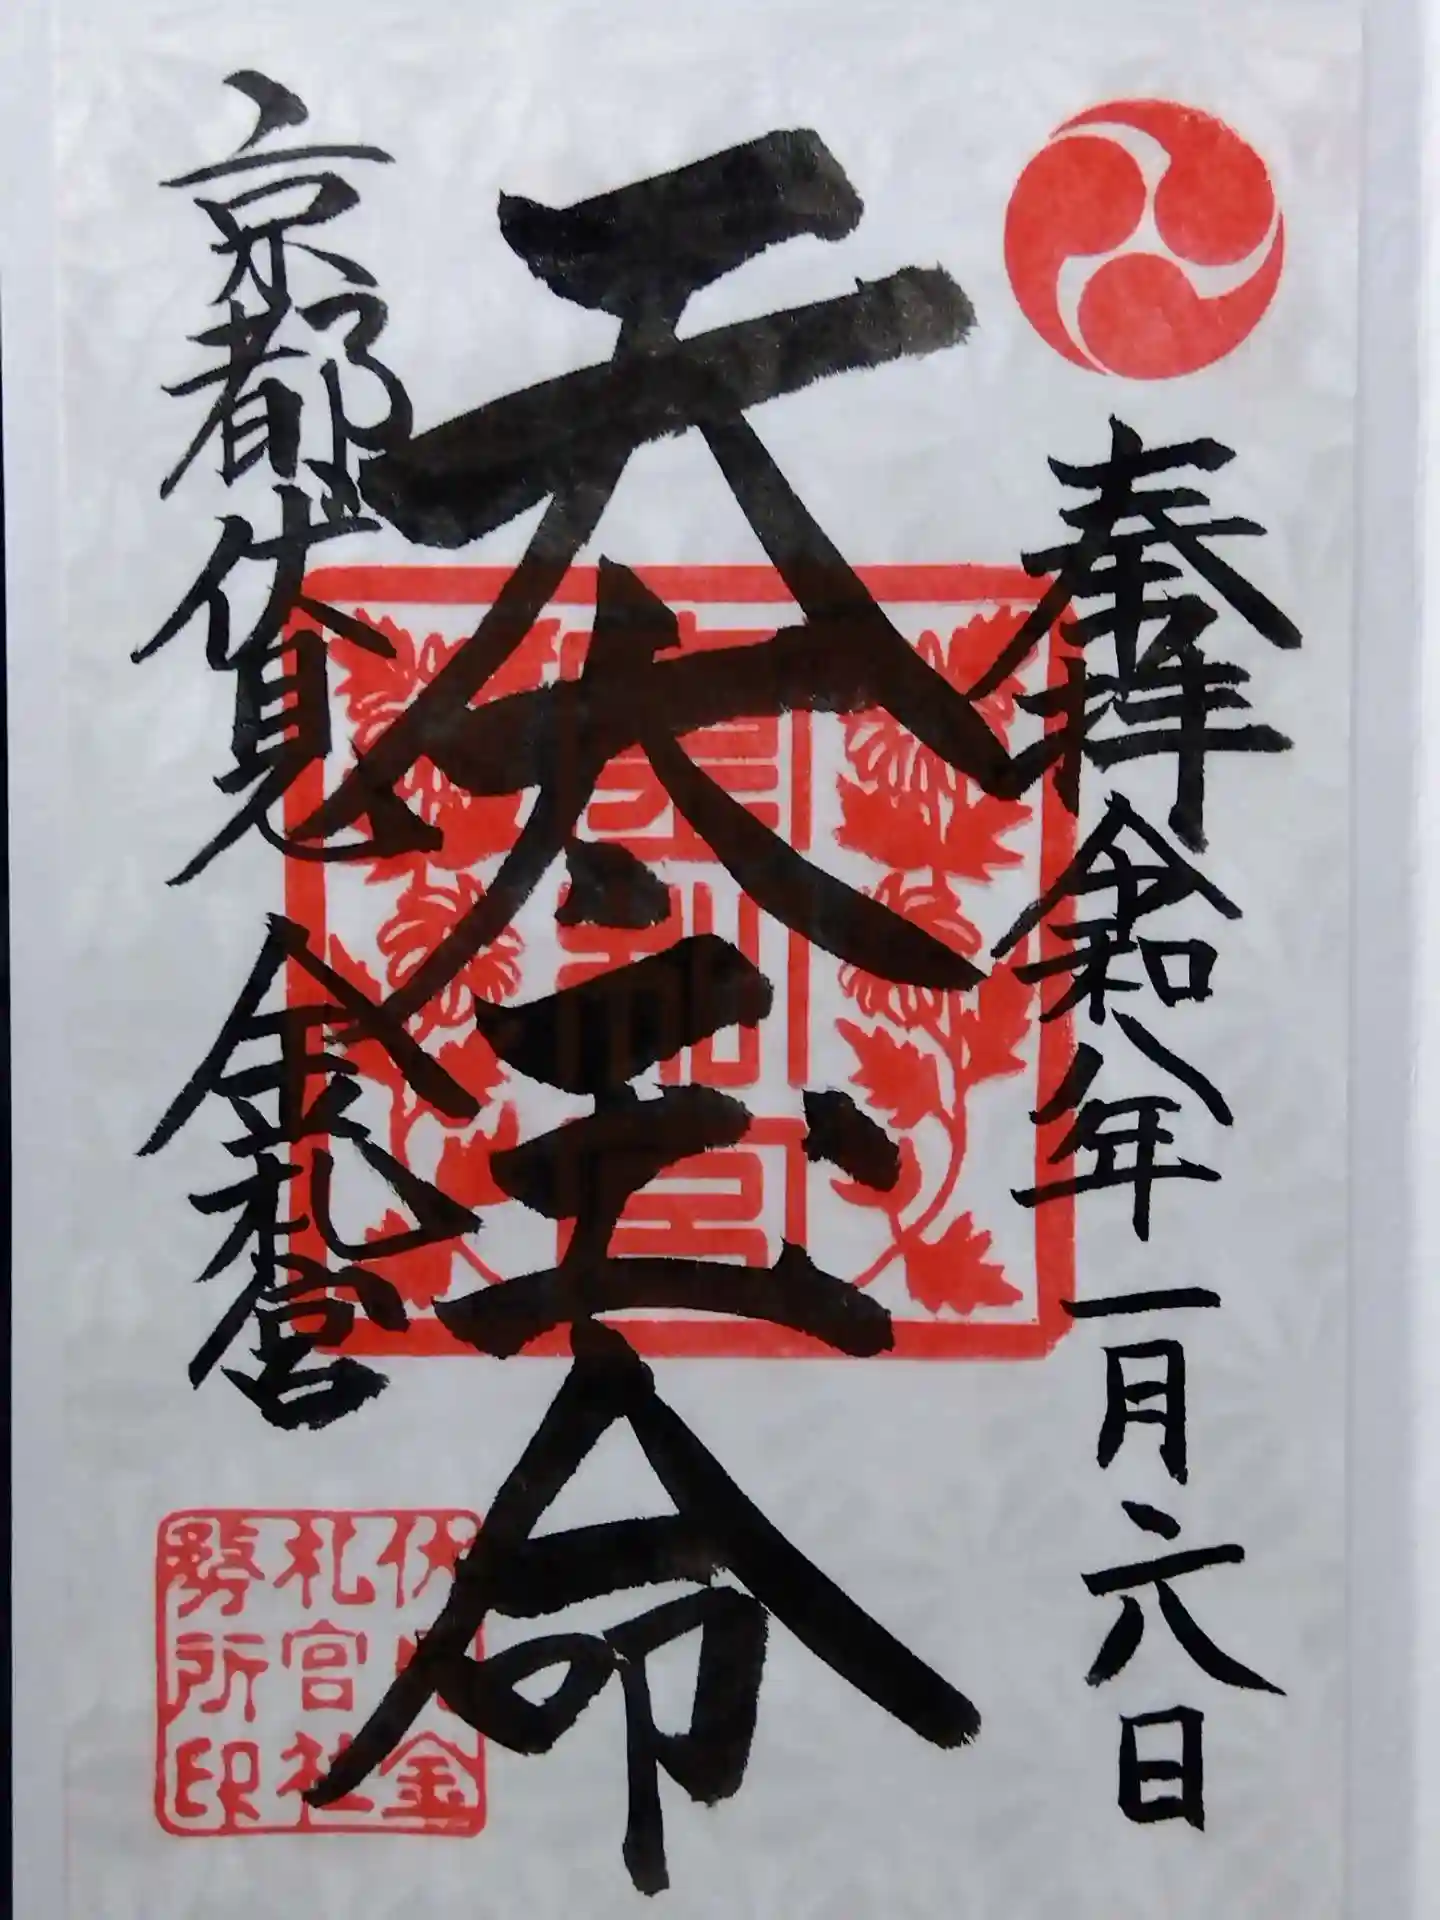 奉拝 令和八年一月六日
天太玉命
京都伏見 金札宮
金札宮
伏見金
札宮社
務所印